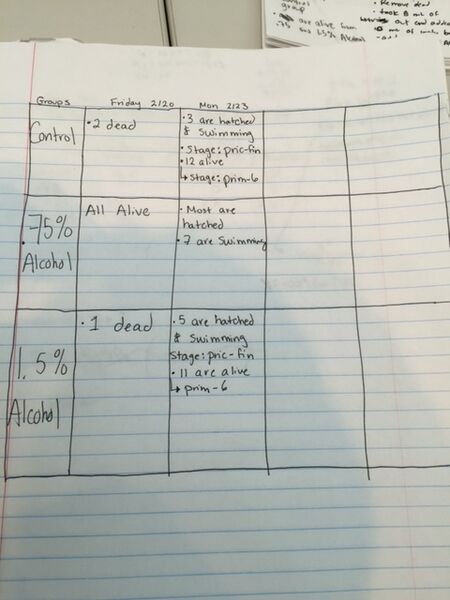 group
are alive from
.75 and 1.5% Alcohol
Remove dead
took 8 mL of
out and added
Groups
Friday 2/20
Mon 2/23
Control
• 2 dead
• 3 are hatched
& swimming
• Stage: pric-fin
• 12 alive
↳ stage: prim-6
.75%
Alcohol
All Alive
• Most are
hatched
• 7 are swimming
1.5%
Alcohol
• 1 dead
• 5 are hatched
& swimming
Stage: pric-fin
• 11 are alive
↳ prim-6